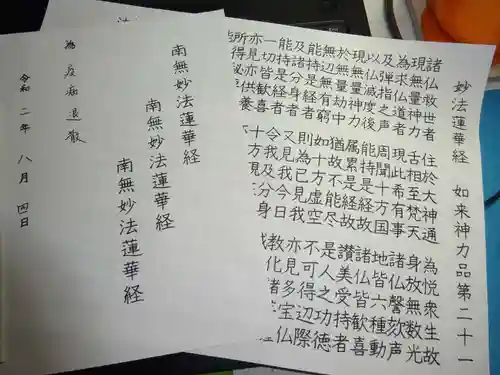 妙法蓮華経 如来神力品第二十一
諸仏救世者 住於大神通 為悦衆生故
現無量神力 舌相至梵天 身放無数光
為求仏道者 現此希有事 諸仏謦欬声
及弾指之声 周聞十方国 地皆六種動
以仏滅度後 能持是経故 諸仏皆歓喜
現無量神力 属累是経故 讃美受持者
於無量劫中 猶故不能尽 是人之功徳
無辺無有窮 如十方虚空 不可得辺際
能持是経者 則為已見我 亦見多宝仏
及諸分身者 又見我今日 教化諸
能持是経者 令我及分身
一切皆歓喜 十方
亦見亦供養
所得
南無妙法蓮華経
南無妙法蓮華経
南無妙法蓮華経
為疫病退散
令和二年 八月 四日